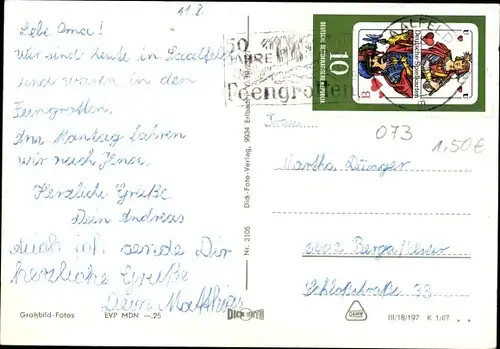 11.8.
Lebe Oma!
Wir sind heute in Saalfeld
und waren in den
Feengrotten.
Am Montag fahren
wir nach Jena.
Herzliche Grüße
Dein Andreas
Auch ich sende Dir
herzliche Grüße
Dein Matthias
Großbild-Fotos EVP MDN —.25
Nr. 3105 Dick-Foto-Verlag, 9934 Erlbach
DICK FOTO
50
JAHRE
Feengrotten
SAALFELD
DEUTSCHE DEMOKRATISCHE REPUBLIK
10
Deutsche Spielkarten
B
U
073
1,50€
Frau
Martha Dünger
6602 Berga/Elster
Schloßstraße 33
III/18/197 K 1/67